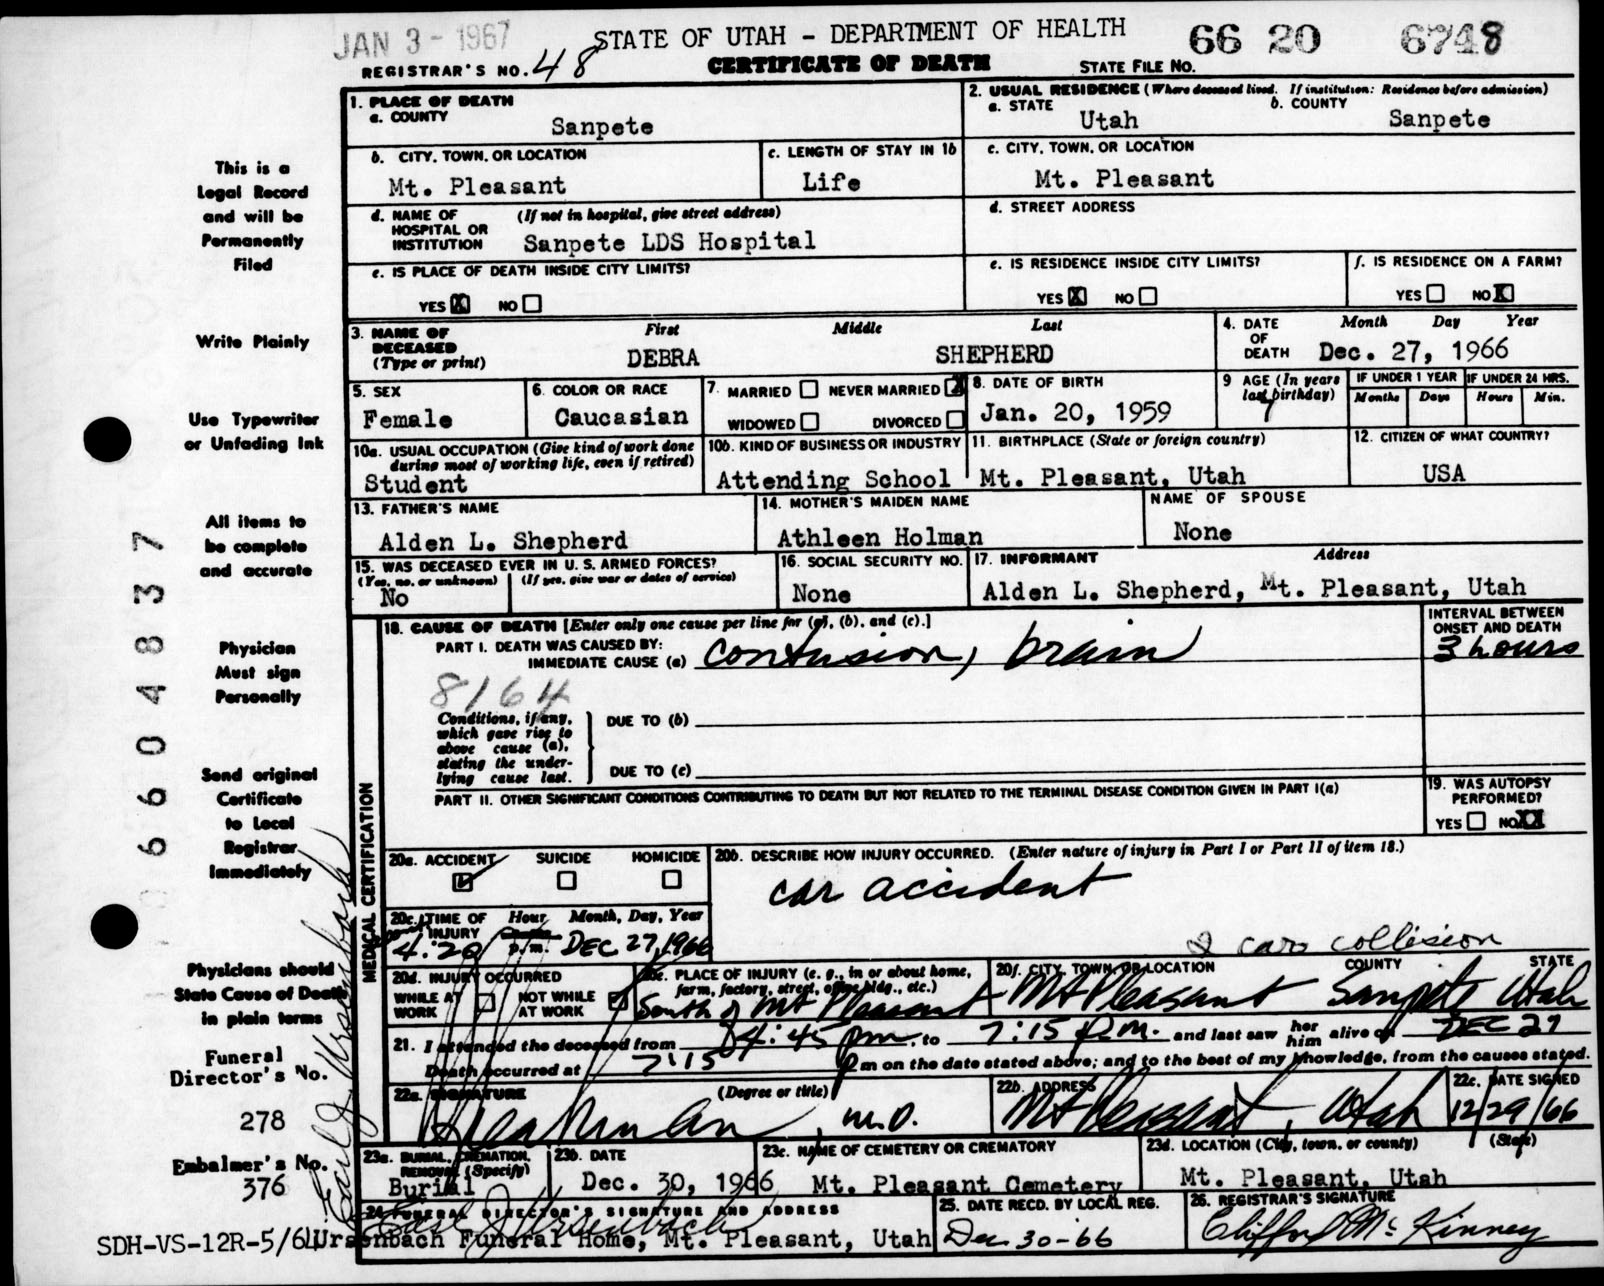 JAN 3 - 1967
STATE OF UTAH - DEPARTMENT OF HEALTH
66 20 6748
REGISTRAR'S NO. 48
CERTIFICATE OF DEATH
STATE FILE NO.
This is a
Legal Record
and will be
Permanently
Filed
Write Plainly
Use Typewriter
or Unfading Ink
All items to
be complete
and accurate
Physician
Must sign
Personally
Send original
Certificate
to Local
Registrar
Immediately
Physicians should
State Cause of Death
in plain terms
Funeral
Director's No.
278
Embalmer's No.
376
SDH-VS-12R-5/61
0 6 6 0 4 8 3 7
Earl J Ursenbach
1. PLACE OF DEATH
a. COUNTY
Sanpete
2. USUAL RESIDENCE (Where deceased lived. If institution: Residence before admission)
a. STATE
Utah
b. COUNTY
Sanpete
b. CITY, TOWN, OR LOCATION
Mt. Pleasant
c. LENGTH OF STAY IN 1b
Life
c. CITY, TOWN, OR LOCATION
Mt. Pleasant
d. NAME OF HOSPITAL OR INSTITUTION (If not in hospital, give street address)
Sanpete LDS Hospital
d. STREET ADDRESS
e. IS PLACE OF DEATH INSIDE CITY LIMITS?
YES X NO
e. IS RESIDENCE INSIDE CITY LIMITS?
YES X NO
f. IS RESIDENCE ON A FARM?
YES NO X
3. NAME OF DECEASED (Type or print)
First Middle Last
DEBRA SHEPHERD
4. DATE OF DEATH
Month Day Year
Dec. 27, 1966
5. SEX
Female
6. COLOR OR RACE
Caucasian
7. MARRIED NEVER MARRIED X
WIDOWED DIVORCED
8. DATE OF BIRTH
Jan. 20, 1959
9 AGE (In years last birthday)
7
IF UNDER 1 YEAR
Months Days
IF UNDER 24 HRS.
Hours Min.
10a. USUAL OCCUPATION (Give kind of work done during most of working life, even if retired)
Student
10b. KIND OF BUSINESS OR INDUSTRY
Attending School
11. BIRTHPLACE (State or foreign country)
Mt. Pleasant, Utah
12. CITIZEN OF WHAT COUNTRY?
USA
13. FATHER'S NAME
Alden L. Shepherd
14. MOTHER'S MAIDEN NAME
Athleen Holman
NAME OF SPOUSE
None
15. WAS DECEASED EVER IN U. S. ARMED FORCES?
(Yes, no, or unknown) (If yes, give war or dates of service)
No
16. SOCIAL SECURITY NO.
None
17. INFORMANT Address
Alden L. Shepherd, Mt. Pleasant, Utah
MEDICAL CERTIFICATION
18. CAUSE OF DEATH [Enter only one cause per line for (a), (b), and (c).]
INTERVAL BETWEEN ONSET AND DEATH
PART I. DEATH WAS CAUSED BY:
IMMEDIATE CAUSE (a) contusion, brain
3 hours
8164
Conditions, if any,
which gave rise to
above cause (a),
stating the under-
lying cause last.
DUE TO (b)
DUE TO (c)
PART II. OTHER SIGNIFICANT CONDITIONS CONTRIBUTING TO DEATH BUT NOT RELATED TO THE TERMINAL DISEASE CONDITION GIVEN IN PART I(a)
19. WAS AUTOPSY PERFORMED?
YES NO XX
20a. ACCIDENT SUICIDE HOMICIDE
20b. DESCRIBE HOW INJURY OCCURRED. (Enter nature of injury in Part I or Part II of item 18.)
car accident
2 car collision
20c. TIME OF INJURY
Hour Month, Day, Year
4:20 p.m. DEC 27, 1966
20d. INJURY OCCURRED
WHILE AT WORK NOT WHILE AT WORK
20e. PLACE OF INJURY (e. g., in or about home, farm, factory, street, office bldg., etc.)
South of Mt Pleasant
20f. CITY, TOWN, OR LOCATION COUNTY STATE
Mt Pleasant Sanpete Utah
21. I attended the deceased from 4:45 pm, to 7:15 p.m. and last saw her him alive on DEC 27
Death occurred at 7:15 p m on the date stated above; and to the best of my knowledge, from the causes stated.
22a. SIGNATURE (Degree or title)
M.D.
22b. ADDRESS
Mt Pleasant, Utah
22c. DATE SIGNED
12/29/66
23a. BURIAL, CREMATION, REMOVAL (Specify)
Burial
23b. DATE
Dec. 30, 1966
23c. NAME OF CEMETERY OR CREMATORY
Mt. Pleasant Cemetery
23d. LOCATION (City, town, or county) (State)
Mt. Pleasant, Utah
24 FUNERAL DIRECTOR'S SIGNATURE AND ADDRESS
Earl J Ursenbach
Ursenbach Funeral Home, Mt. Pleasant, Utah
25. DATE RECD. BY LOCAL REG.
Dec 30-66
26. REGISTRAR'S SIGNATURE
Clifford Mc Kinney